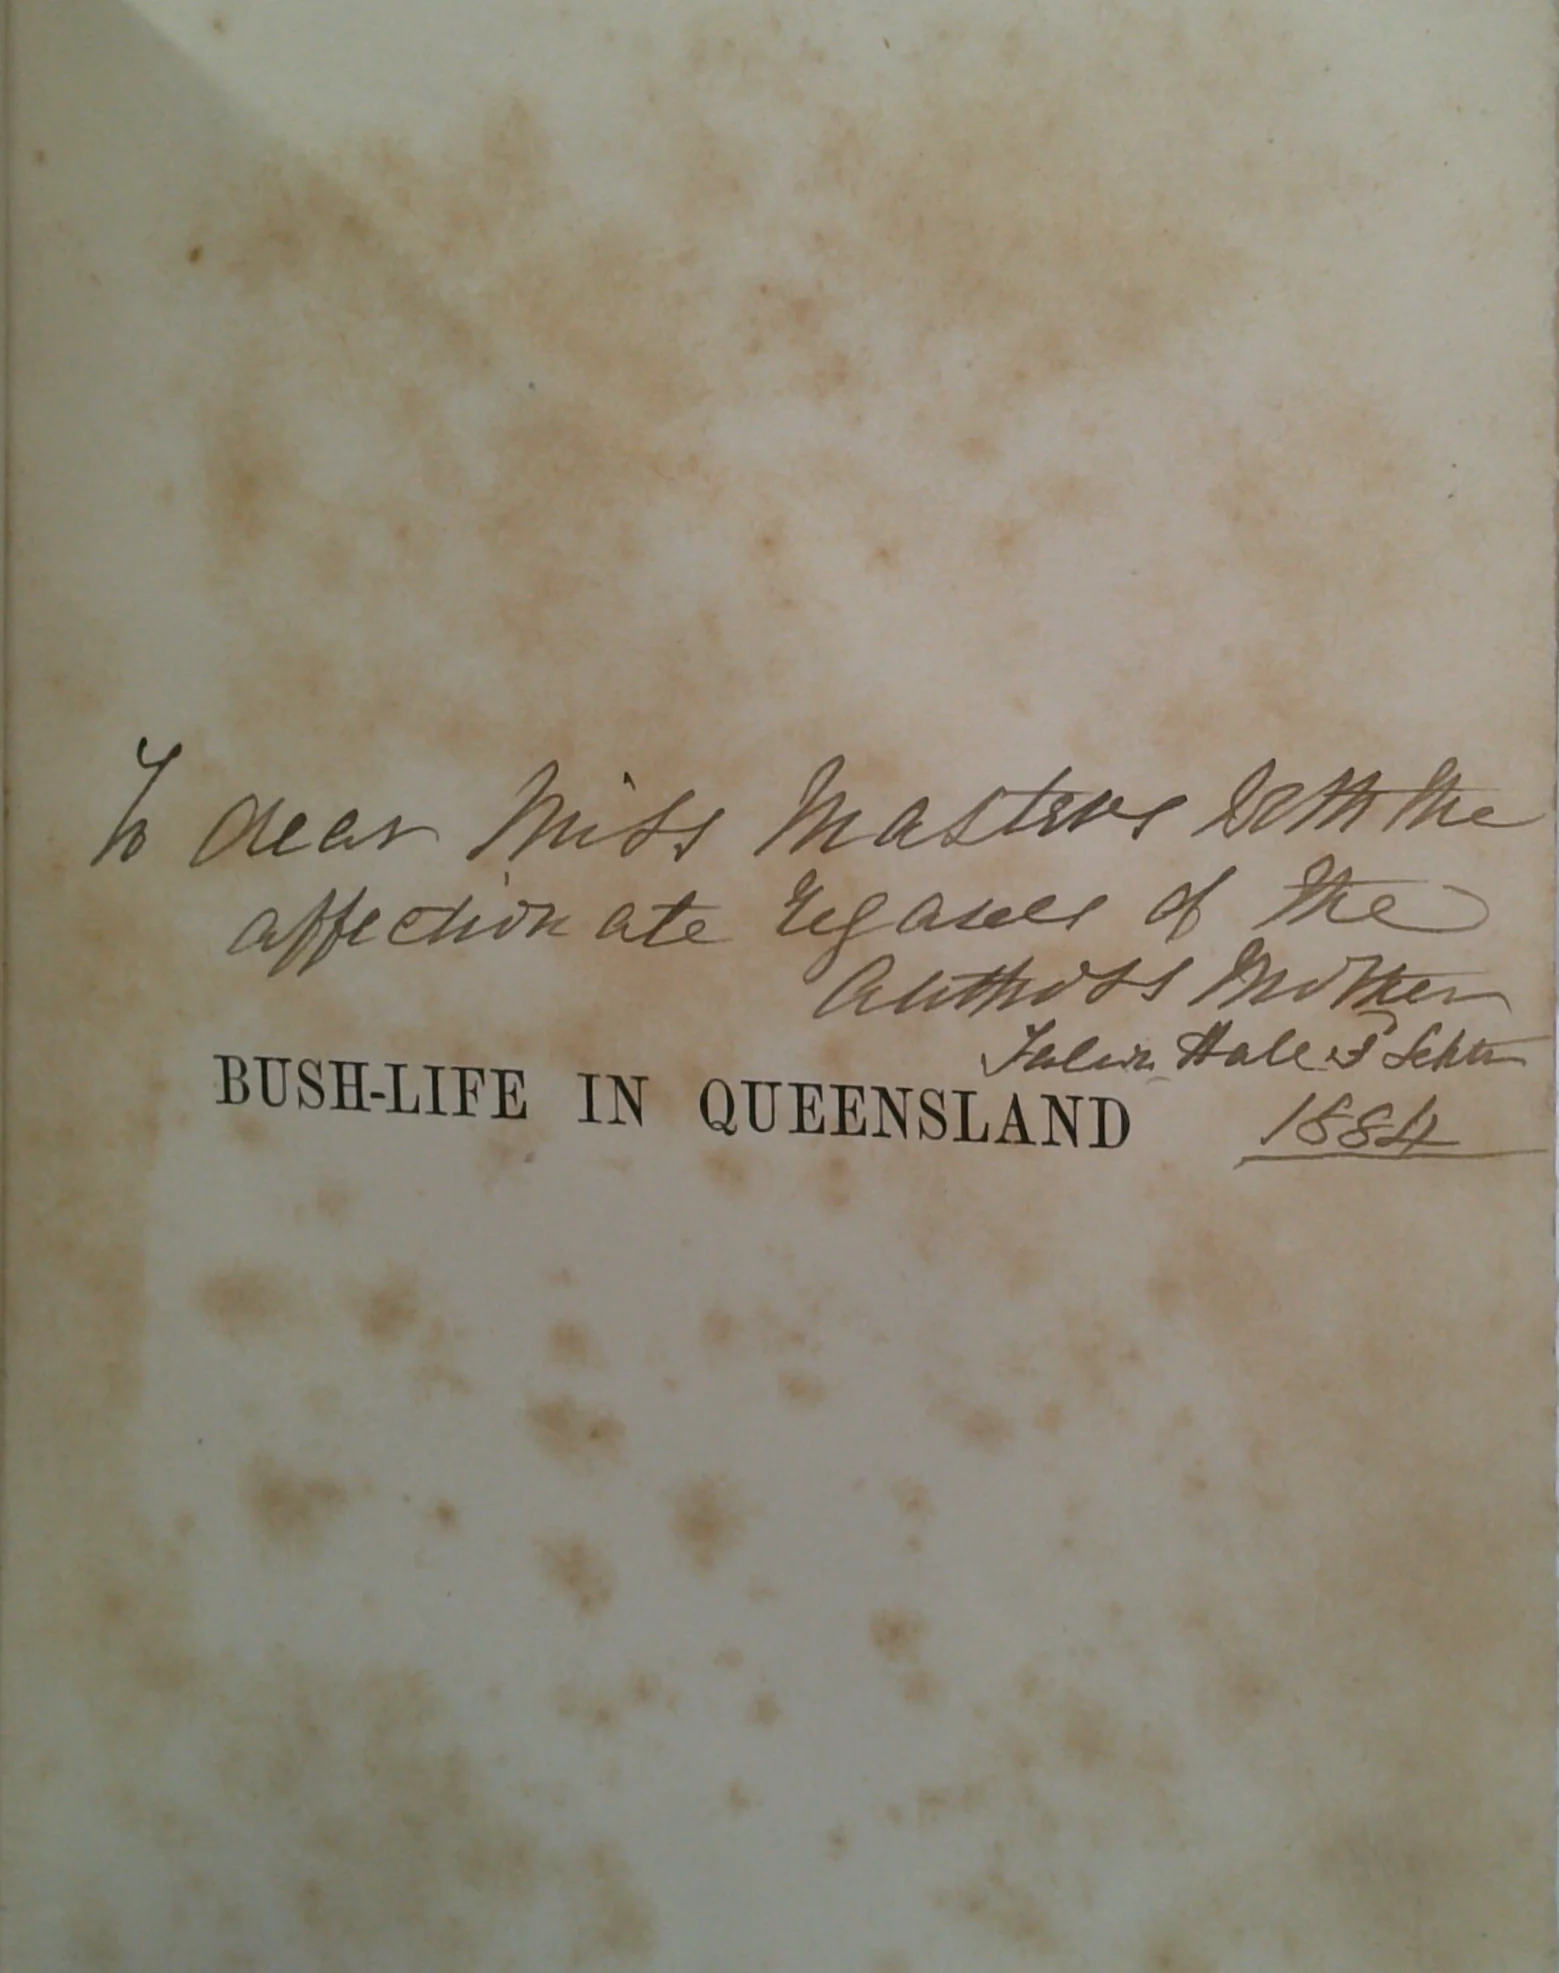 To dear Miss Masters With the
affectionate regards of the
Authors Mother
Hall Septr
BUSH-LIFE IN QUEENSLAND
1884